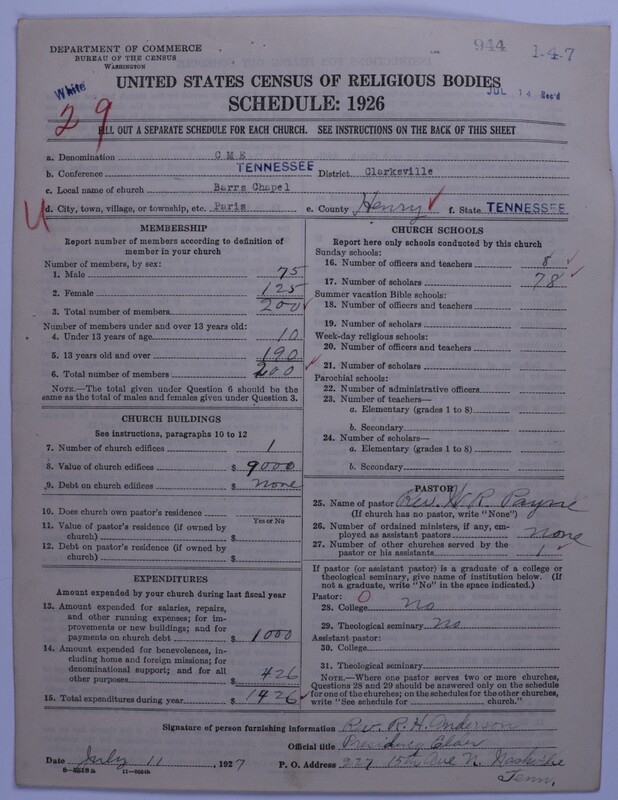 944
1-4-7
DEPARTMENT OF COMMERCE
BUREAU OF THE CENSUS
WASHINGTON
White
UNITED STATES CENSUS OF RELIGIOUS BODIES
SCHEDULE: 1926
JUL 14 Rec'd
29
FILL OUT A SEPARATE SCHEDULE FOR EACH CHURCH. SEE INSTRUCTIONS ON THE BACK OF THIS SHEET
a. Denomination C M E
b. Conference TENNESSEE District Clarksville
c. Local name of church Barrs Chapel
U d. City, town, village, or township, etc. Paris e. County Henry ✓ f. State TENNESSEE
MEMBERSHIP
Report number of members according to definition of
member in your church
Number of members, by sex:
1. Male 75
2. Female 125
3. Total number of members 200
Number of members under and over 13 years old:
4. Under 13 years of age 10
5. 13 years old and over 190
6. Total number of members 200 ✓
NOTE.—The total given under Question 6 should be the
same as the total of males and females given under Question 3.
CHURCH BUILDINGS
See instructions, paragraphs 10 to 12
7. Number of church edifices 1
8. Value of church edifices $ 9000
9. Debt on church edifices $ none
10. Does church own pastor's residence
Yes or No
11. Value of pastor's residence (if owned by
church) $
12. Debt on pastor's residence (if owned by
church) $
EXPENDITURES
Amount expended by your church during last fiscal year
13. Amount expended for salaries, repairs,
and other running expenses; for im-
provements or new buildings; and for
payments on church debt $ 1000
14. Amount expended for benevolences, in-
cluding home and foreign missions; for
denominational support; and for all
other purposes $ 426
15. Total expenditures during year $ 1426 ✓
CHURCH SCHOOLS
Report here only schools conducted by this church
Sunday schools:
16. Number of officers and teachers 8 ✓
17. Number of scholars 78 ✓
Summer vacation Bible schools:
18. Number of officers and teachers
19. Number of scholars
Week-day religious schools:
20. Number of officers and teachers
21. Number of scholars
Parochial schools:
22. Number of administrative officers
23. Number of teachers—
a. Elementary (grades 1 to 8)
b. Secondary
24. Number of scholars—
a. Elementary (grades 1 to 8)
b. Secondary
PASTOR
25. Name of pastor Rev. H. R. Payne
(If church has no pastor, write "None")
26. Number of ordained ministers, if any, em-
ployed as assistant pastors none
27. Number of other churches served by the
pastor or his assistants 1 ✓
If pastor (or assistant pastor) is a graduate of a college or
theological seminary, give name of institution below. (If
not a graduate, write "No" in the space indicated.)
Pastor: O
28. College No
29. Theological seminary No
Assistant pastor:
30. College
31. Theological seminary
NOTE.—Where one pastor serves two or more churches,
Questions 28 and 29 should be answered only on the schedule
for one of the churches; on the schedules for the other churches,
write "See schedule for church."
Signature of person furnishing information Rev. R. H. Anderson
Official title Presiding Elder
Date July 11, 1927 P. O. Address 927 15th Ave N. Nashville
Tenn.